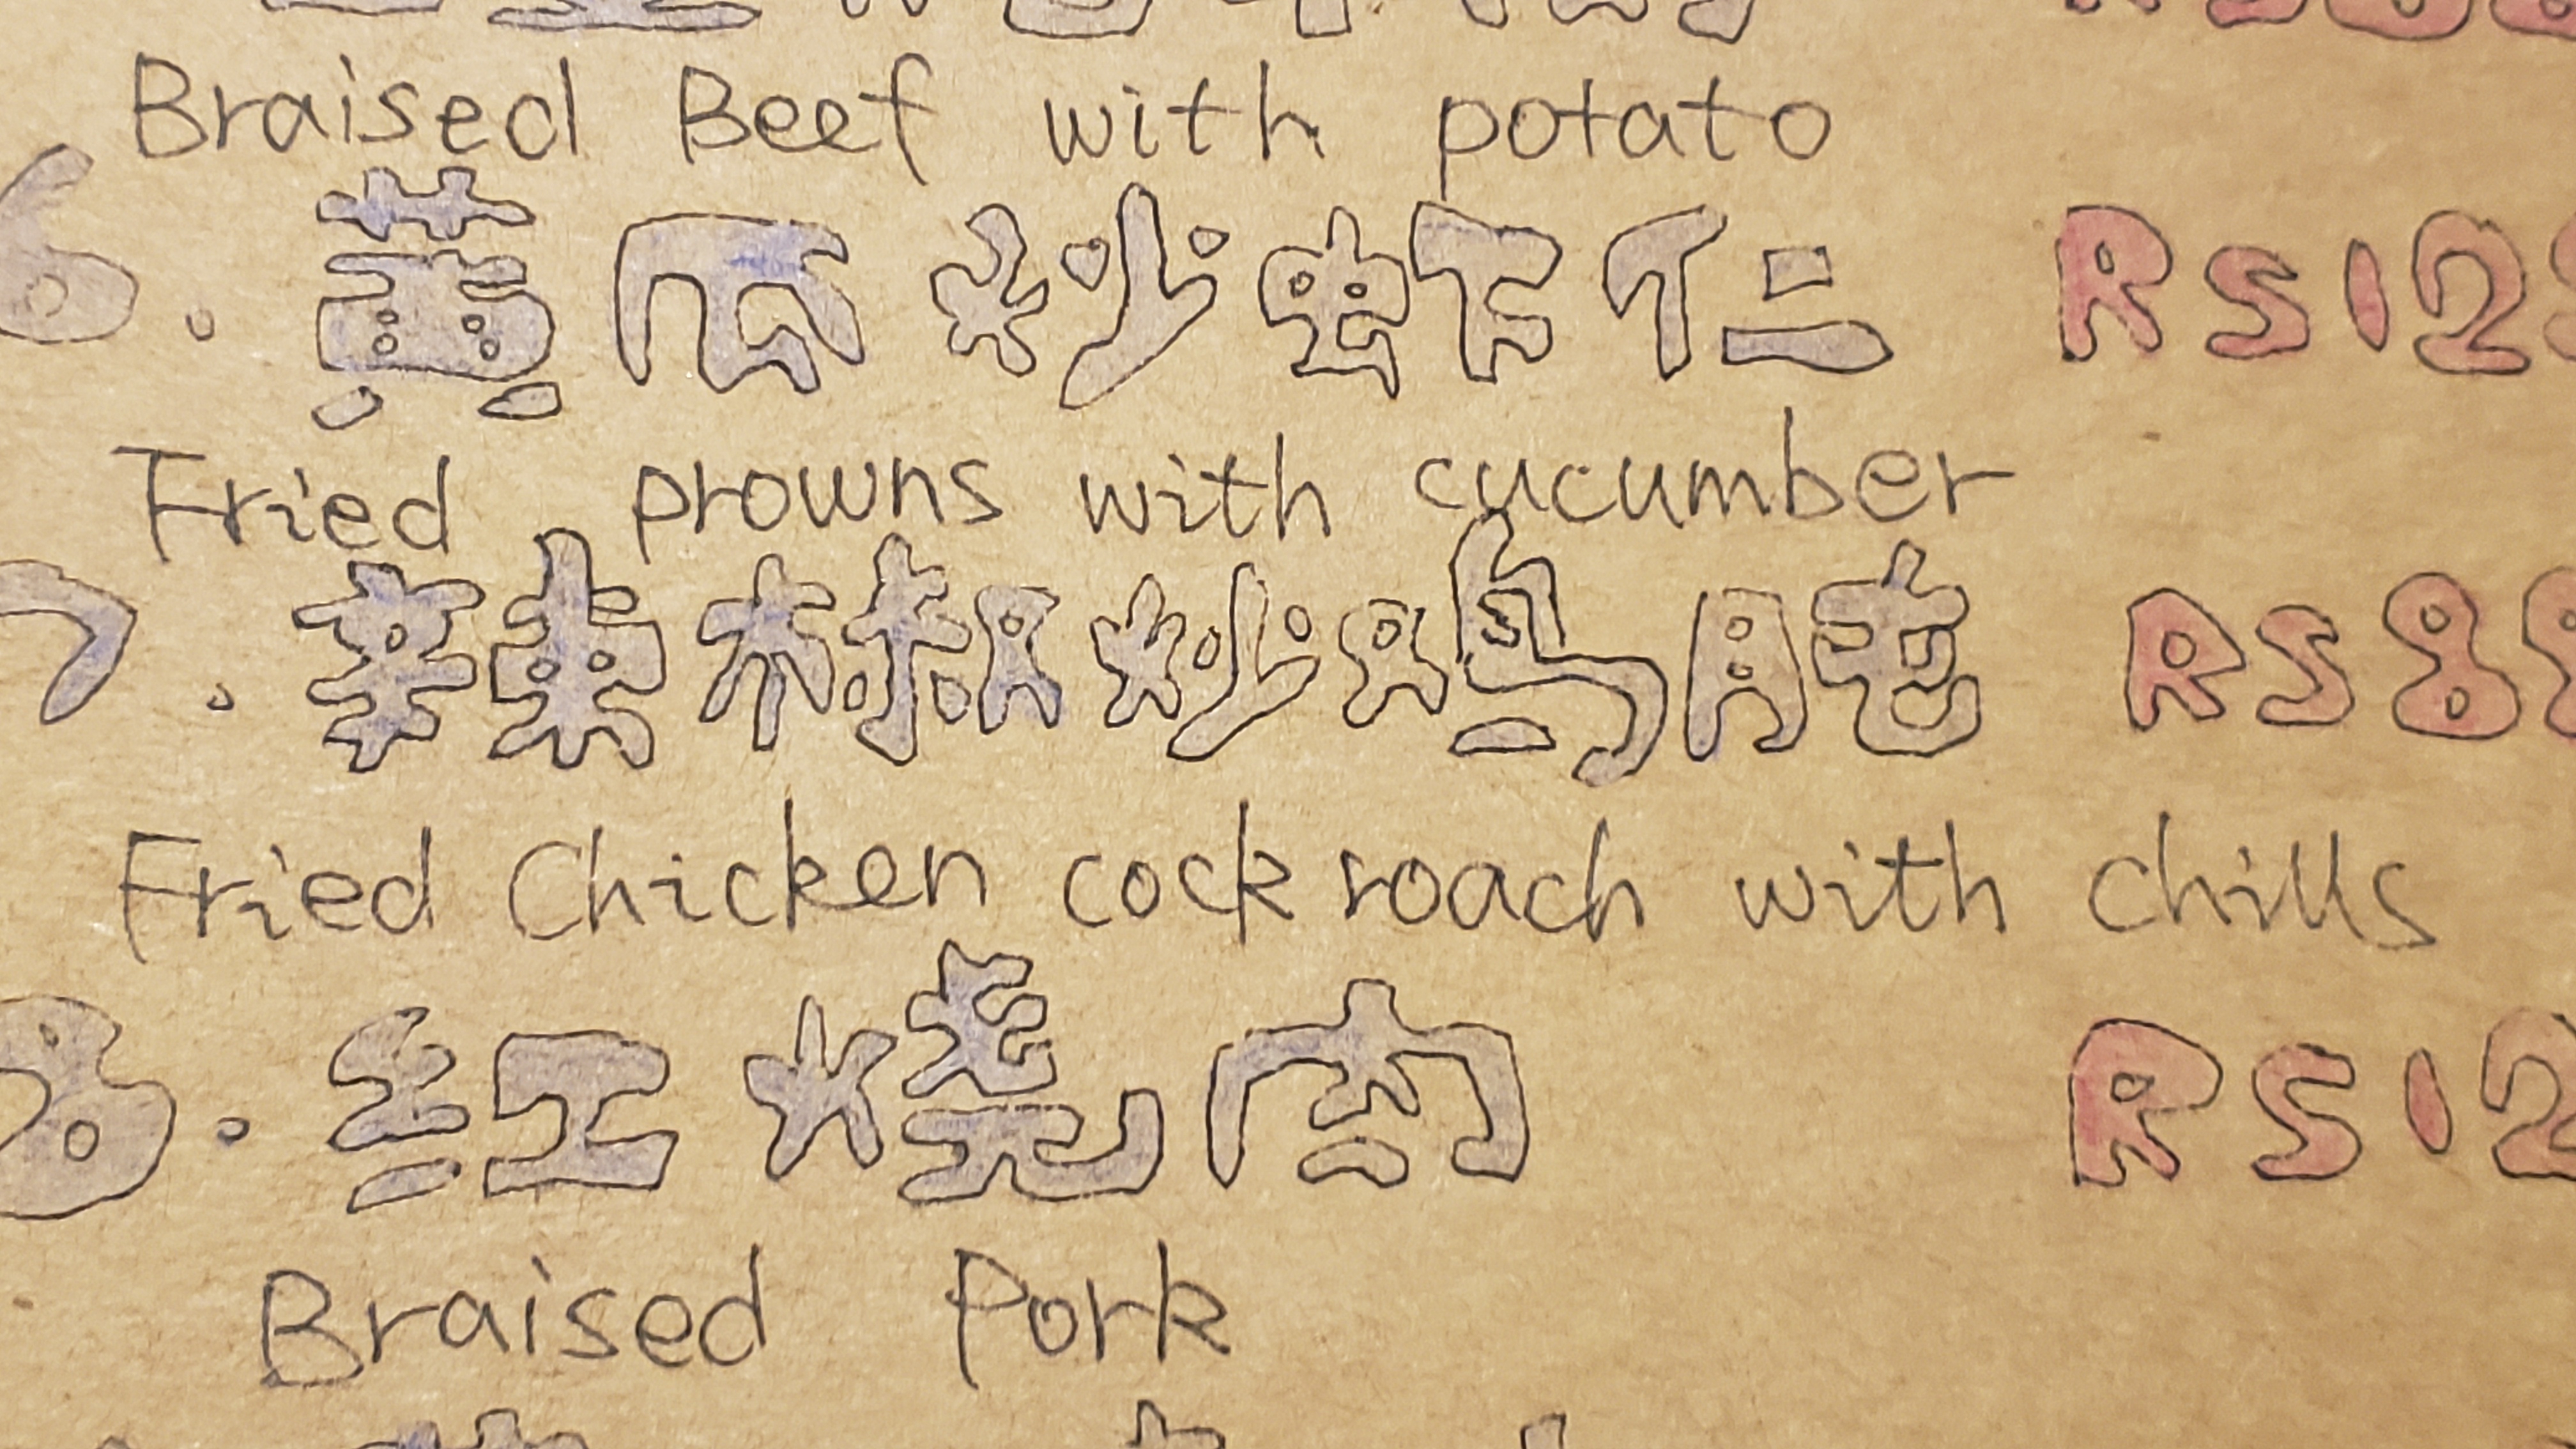 Braised Beef with potato
6. 黄瓜炒虾仁 RS12
Fried prowns with cucumber
7. 辣椒炒鸡 RS88
Fried Chicken cockroach with chills
8. 红烧肉 RS12
Braised Pork